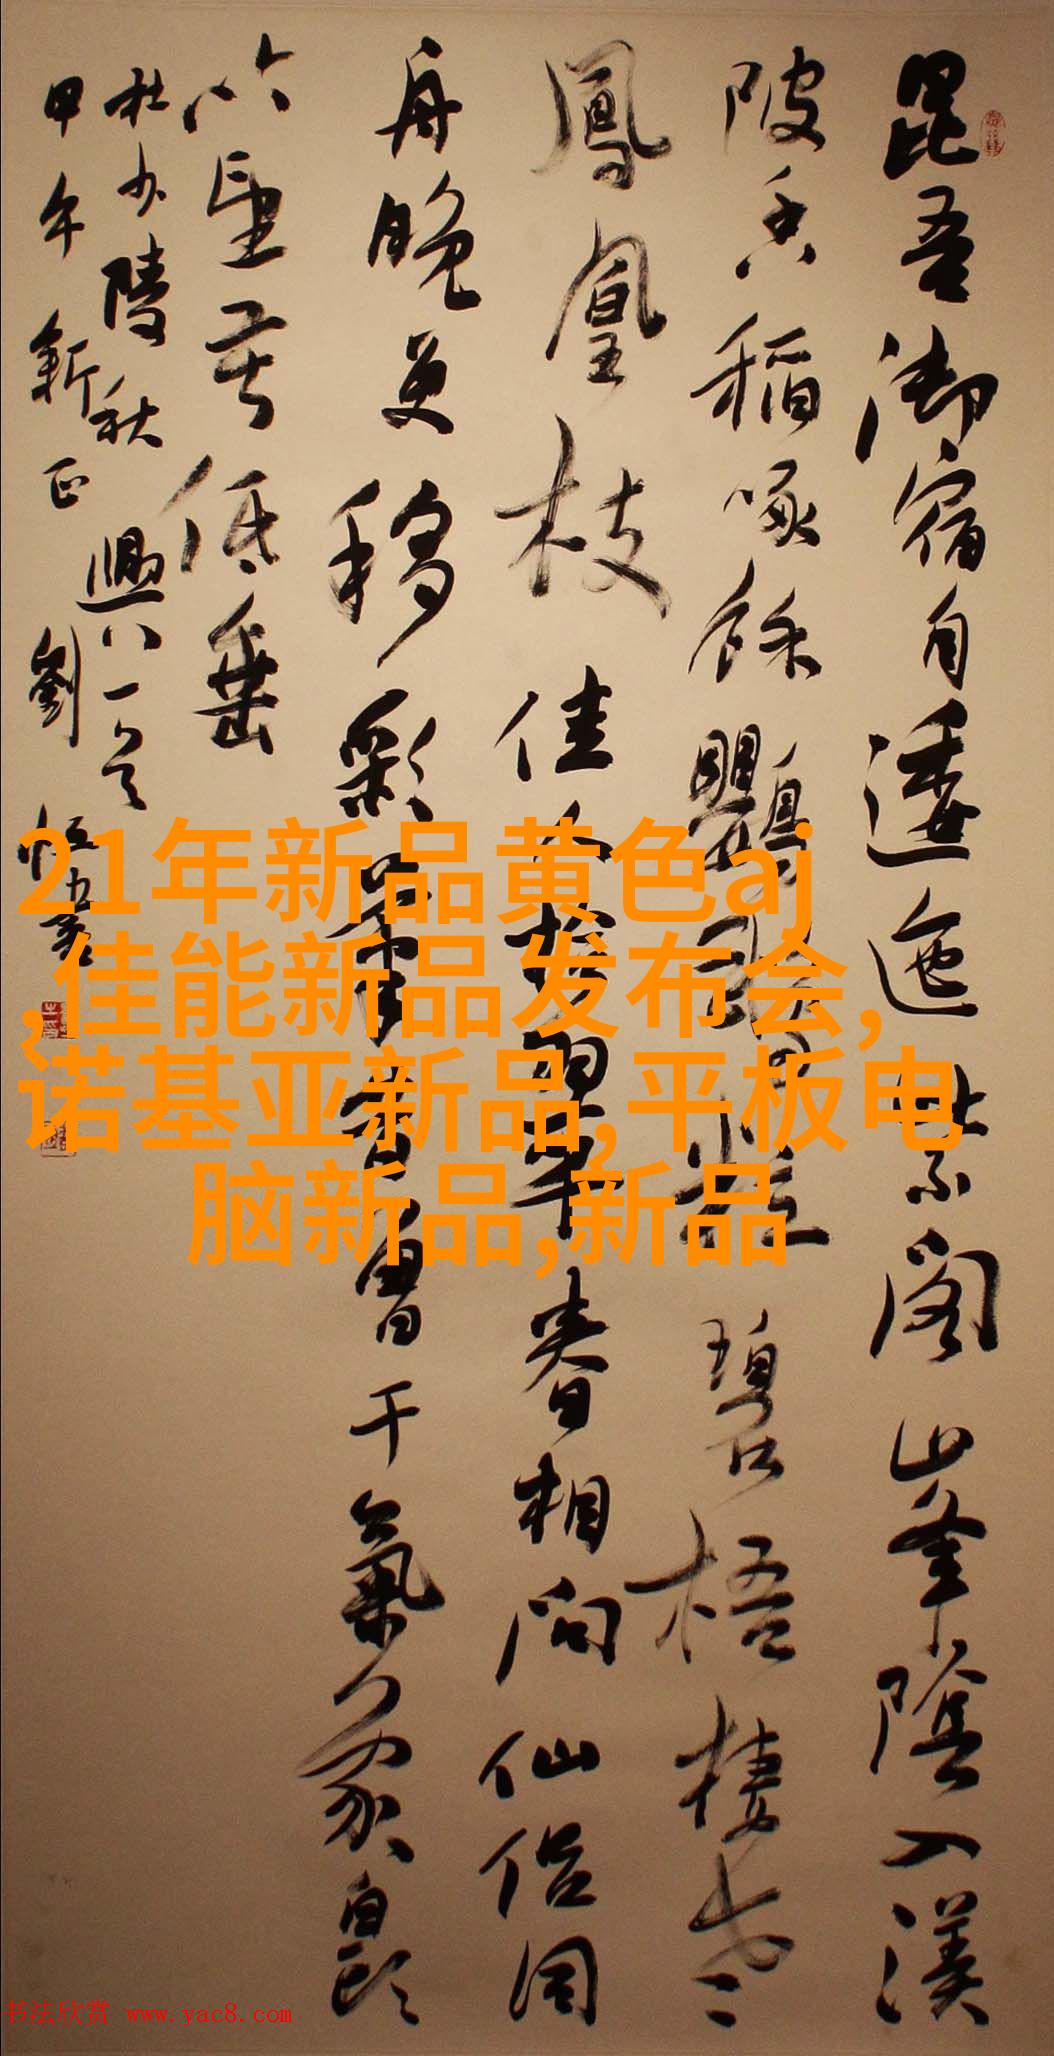 昆吾御宿自逶迤紫閣山峯陰入渼
陂香稻啄餘鸚鵡粒碧梧棲老
鳳凰枝佳人拾翠春相問仙侶同
舟晚更移彩筆昔曾干氣象白頭
吟望苦低垂
杜少陵秋興八一首
甲午新正劉
21年新品黄色aj
,佳能新品发布会,
诺基亚新品,平板电
脑新品,新品
书法欣赏 www.yac8.com